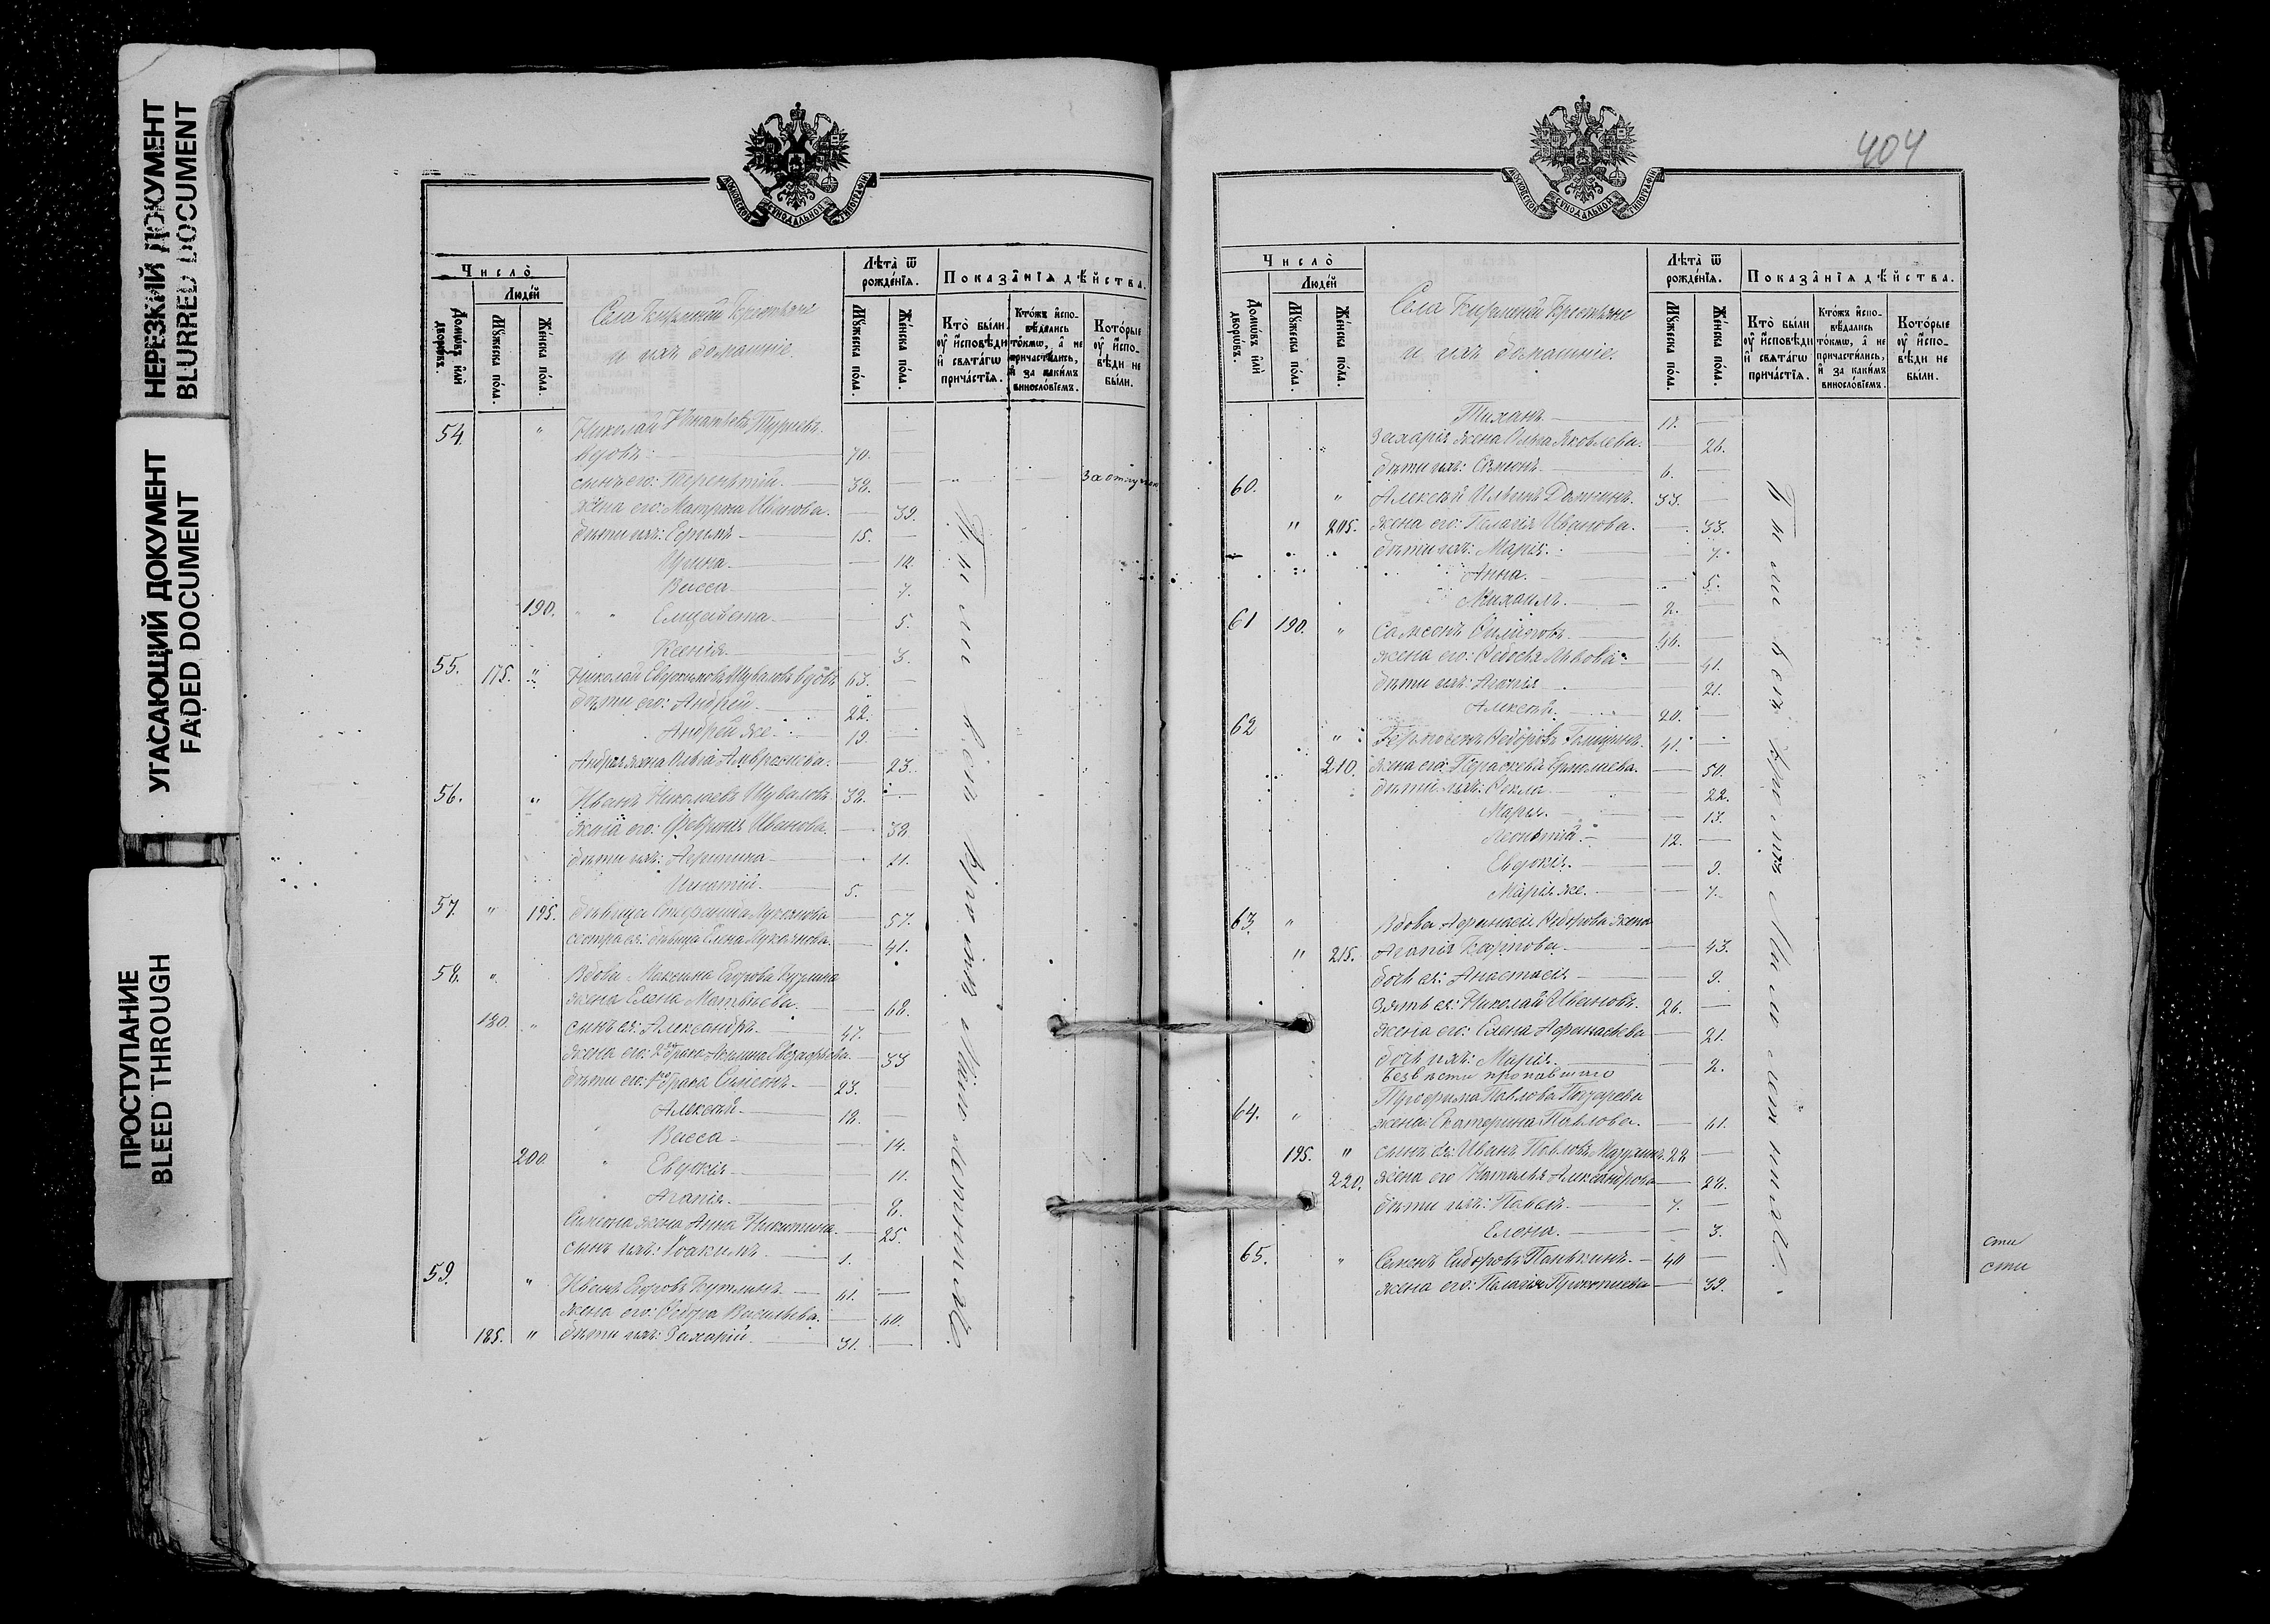 НЕРЕЗКИЙ ДОКУМЕНТ
BLURRED DOCUMENT
УГАСАЮЩИЙ ДОКУМЕНТ
FADED DOCUMENT
ПРОСТУПАНИЕ
BLEED THROUGH
МОСКОВСКОЙ СѴНОДАЛЬНОЙ ТИПОГРАФІИ
Число̀
Люде́й
Домѡ́въ и҆лѝ дворѡ́въ.
Мꙋ́жеска по́ла.
Же́нска по́ла.
Села Крестьяне
и ихъ домашніе.
Лѣта̀ ѿ рожде́нїѧ.
Мꙋ́жеска по́ла.
Же́нска по́ла.
Показа̑нїѧ дѣ́йства.
Кто̀ бы́ли ᲂу҆ и҆сповѣ́ди и҆ свѧта́гѡ прича́стїѧ.
Кто́жъ и҆сповѣ́дались то́кмѡ, а҆ не причасти́лись, и҆ за каки́мъ винословїемъ.
Кото́рые ᲂу҆ и҆сповѣ́ди не бы́ли.
54. " Николай
вдовъ. — 70. —
сынъ его: Терентій. — 38. —
жена его: Матрона Иванова. — 39.
дѣти ихъ: Ефимъ — 15. —
Ирина. — 12.
Васса — 7.
190. " Елисавета. — 5.
Ксенія. — 3.
55. 175. " Николай Евдокимовъ Шуваловъ вдовъ 63. —
дѣти его: Андрей. — 22. —
Андрей же. — 19. —
Андрея жена Ольга — 23.
56. " Иванъ Николаевъ Шуваловъ. 38. —
жена его: Иванова. — 38.
дѣти ихъ: — 11.
Игнатій. — 5. —
57. " 195. дѣвица Стефанида Лукоянова — 57.
сестра ея: дѣвица Елена Лукоянова. — 41.
58. " Вдова Максима Егорова
жена Елена Матвѣева. — 68.
180. " сынъ ея: Александръ. — 47. —
жена его: 2го брака Акилина — 33
дѣти его: 1го брака Симеонъ. — 23.
Алексѣй. — 18. —
Васса — 14.
200. " Евдокія. — 11.
Агапія. — 8.
Симеона жена Анна Никитина. — 25.
сынъ ихъ: Іоакимъ. — 1.
59. " Иванъ Егоровъ — 61. —
жена его: Ѳедора Васильева. — 60.
185. " дѣти ихъ: Захарій. — 31. —
Были вси кромѣ малолетнихъ.
404
МОСКОВСКОЙ СѴНОДАЛЬНОЙ ТИПОГРАФІИ
Число̀
Люде́й
Домѡ́въ и҆лѝ дворѡ́въ.
Мꙋ́жеска по́ла.
Же́нска по́ла.
Села Крестьяне
и ихъ домашніе.
Лѣта̀ ѿ рожде́нїѧ.
Мꙋ́жеска по́ла.
Же́нска по́ла.
Показа̑нїѧ дѣ́йства.
Кто̀ бы́ли ᲂу҆ и҆сповѣ́ди и҆ свѧта́гѡ прича́стїѧ.
Кто́жъ и҆сповѣ́дались то́кмѡ, а҆ не причасти́лись, и҆ за каки́мъ винословїемъ.
Кото́рые ᲂу҆ и҆сповѣ́ди не бы́ли.
Тиханъ — 17. —
Захарія жена Ольга Яковлева. — 26.
дѣти ихъ: Сѵмеонъ — 6. —
60. " Алексѣй Ильинъ 33. —
" 205. жена его: Пелагія Иванова. — 33.
дѣти ихъ: Марія. — 7.
Анна. — 5.
Михаилъ. — 2. —
61 190. " Самсонъ Филиповъ. — 46. —
жена его: Ѳедосья Львова — 41.
дѣти ихъ: Агапія — 21.
Алексѣй. — 20. —
62 " Ѳедоровъ 41. —
210. жена его: Параскева Ермолаева. — 50.
дѣти ихъ: Ѳекла — 22.
Марія. — 13.
Леонтій. — 12. —
Евдокія. — 9.
Марія же. — 7.
63. " Вдова Афанасія Ѳедорова жена
" 215. Агапія Карпова. — 43.
дочь ея: Анастасія. — 9.
Зять ея: Николай Ивановъ. 26. —
жена его: Елена Афанасьева — 21.
дочь ихъ: Марія. — 2.
безвѣсти пропавшаго
Павлова
64. " жена: Екатерина Павлова. — 61.
195. " сынъ ея: Иванъ Павловъ 28 —
220. жена его Наталья Александрова — 28.
дѣти ихъ: Павелъ. — 7. —
Елена. — 3.
65. " Семенъ Сидоровъ Панькинъ. — 40 —
жена его: Пелагія Прокопіева — 39.
Были вси кромѣ малолетнихъ.
сти
сти